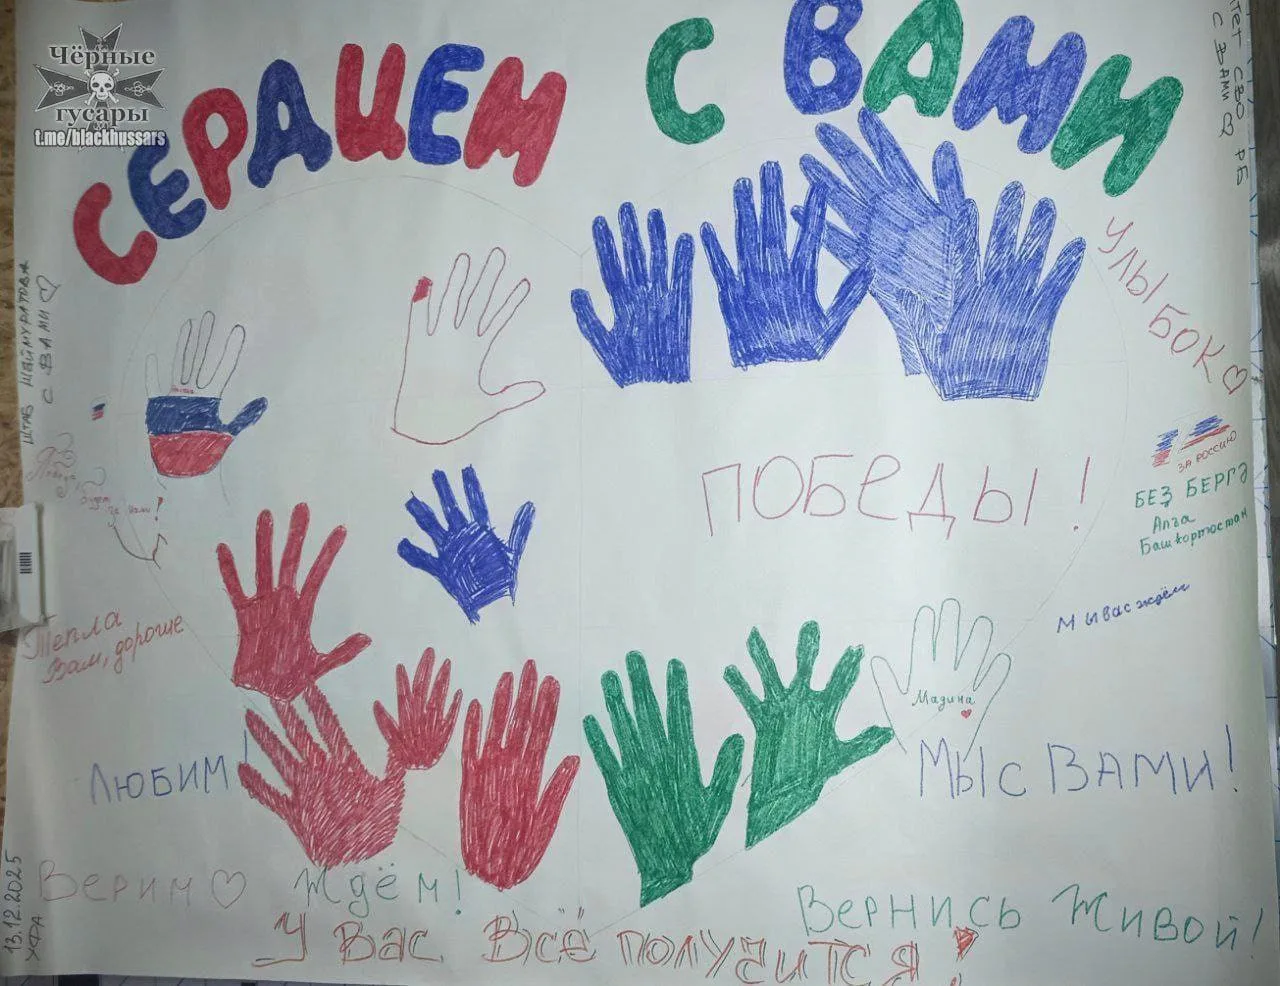 Чёрные
гусары
t.me/blackhussars
СЕРДЦЕМ С ВАМИ
С ВАМИ ♡ РБ
УЛЫБОК ♡
ШТАБ ШАЙМУРАТОВА
С ВАМИ ♡
ПОБЕДЫ!
ЗА РОССИЮ
БЕЗ БЕРГӘ
Алга
Башкортостан
Мы вас ждём
Тепла
Вам, дорогие
Мадина
ЛЮБИМ!
МЫ С ВАМИ!
ВЕРИМ ♡ ЖДЁМ!
ВЕРНИСЬ ЖИВОЙ!
У ВАС ВСЁ ПОЛУЧИТСЯ!
13.12.2025
УФА